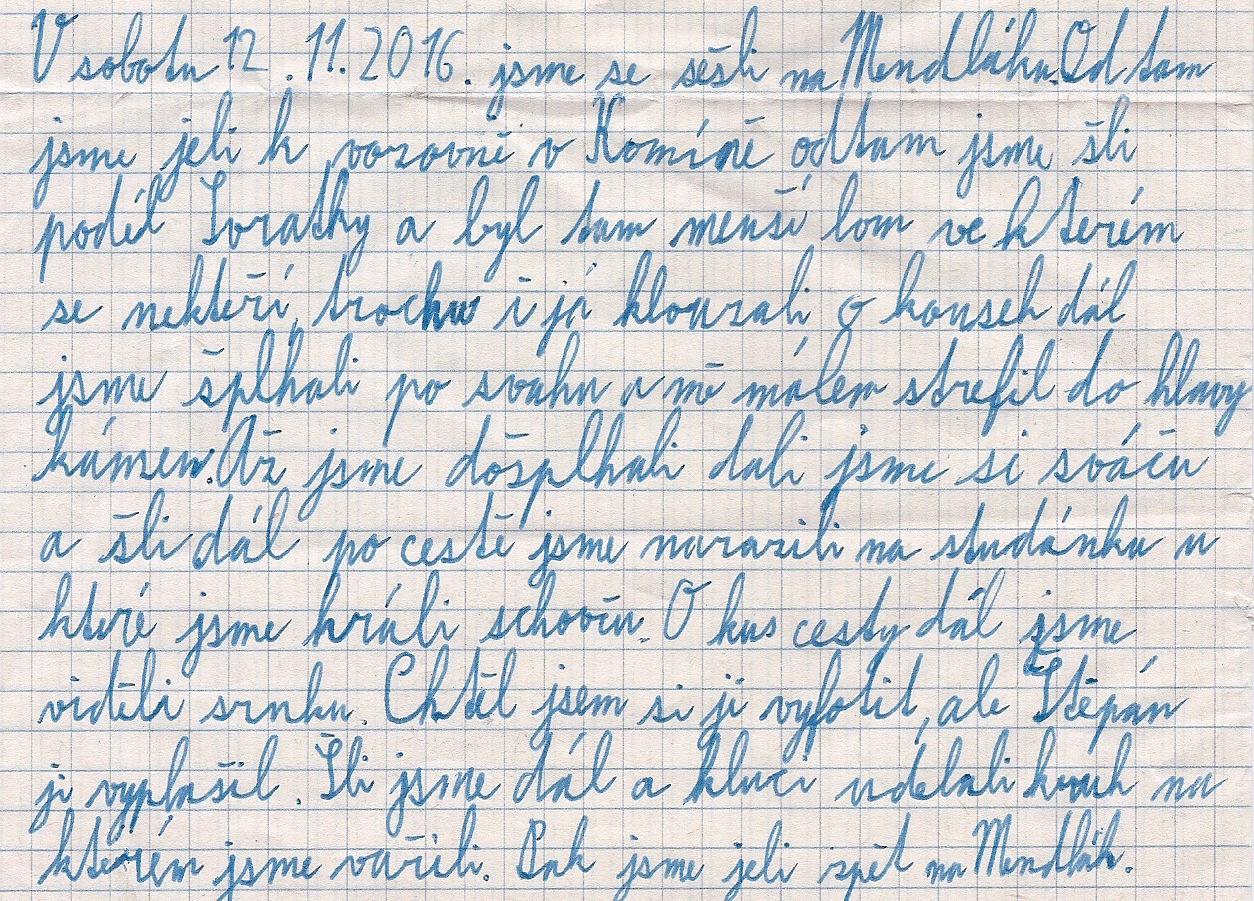 V sobotu 12.11.2016. jsme se sešli na Mendláku. Od tam
jsme jeli k vozovně v Komíně odtam jsme šli
podél Svratky a byl tam menší lom ve kterém
se nekteří, trochu i já klouzali o kousek dál
jsme šplhali po svahu a mě málem strefil do hlavy
kámen. Až jsme došplhali dali jsme si sváču
a šli dál po cestě jsme narazili na studánku u
které jsme hráli schovču. O kus cesty dál jsme
viděli srnku. Chtěl jsem si ji vyfotit, ale Štěpán
ji vyplašil. Šli jsme dál a kluci udělali kruh na
kterém jsme vařili. Pak jsme jeli zpět na Mendlák.